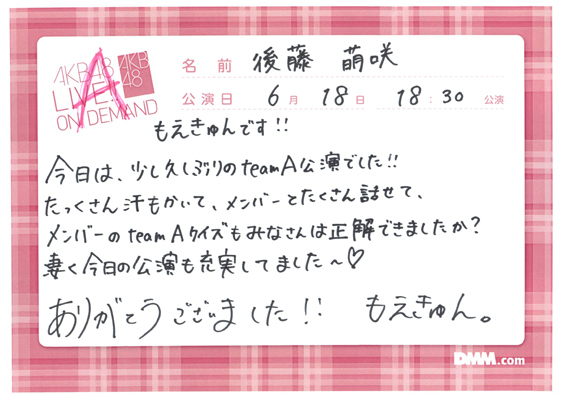 AKB48
LIVE!!
ON DEMAND
A
AKB
48
名前 後藤 萌咲
公演日 6月 18日 18:30 公演
もえきゅんです!!
今日は、少し久しぶりのteamA公演でした!!
たっくさん汗もかいて、メンバーとたくさん話せて、
メンバーのteamAクイズもみなさんは正解できましたか?
凄く今日の公演も充実してました〜♡
ありがとうございました!! もえきゅん。
DMM.com